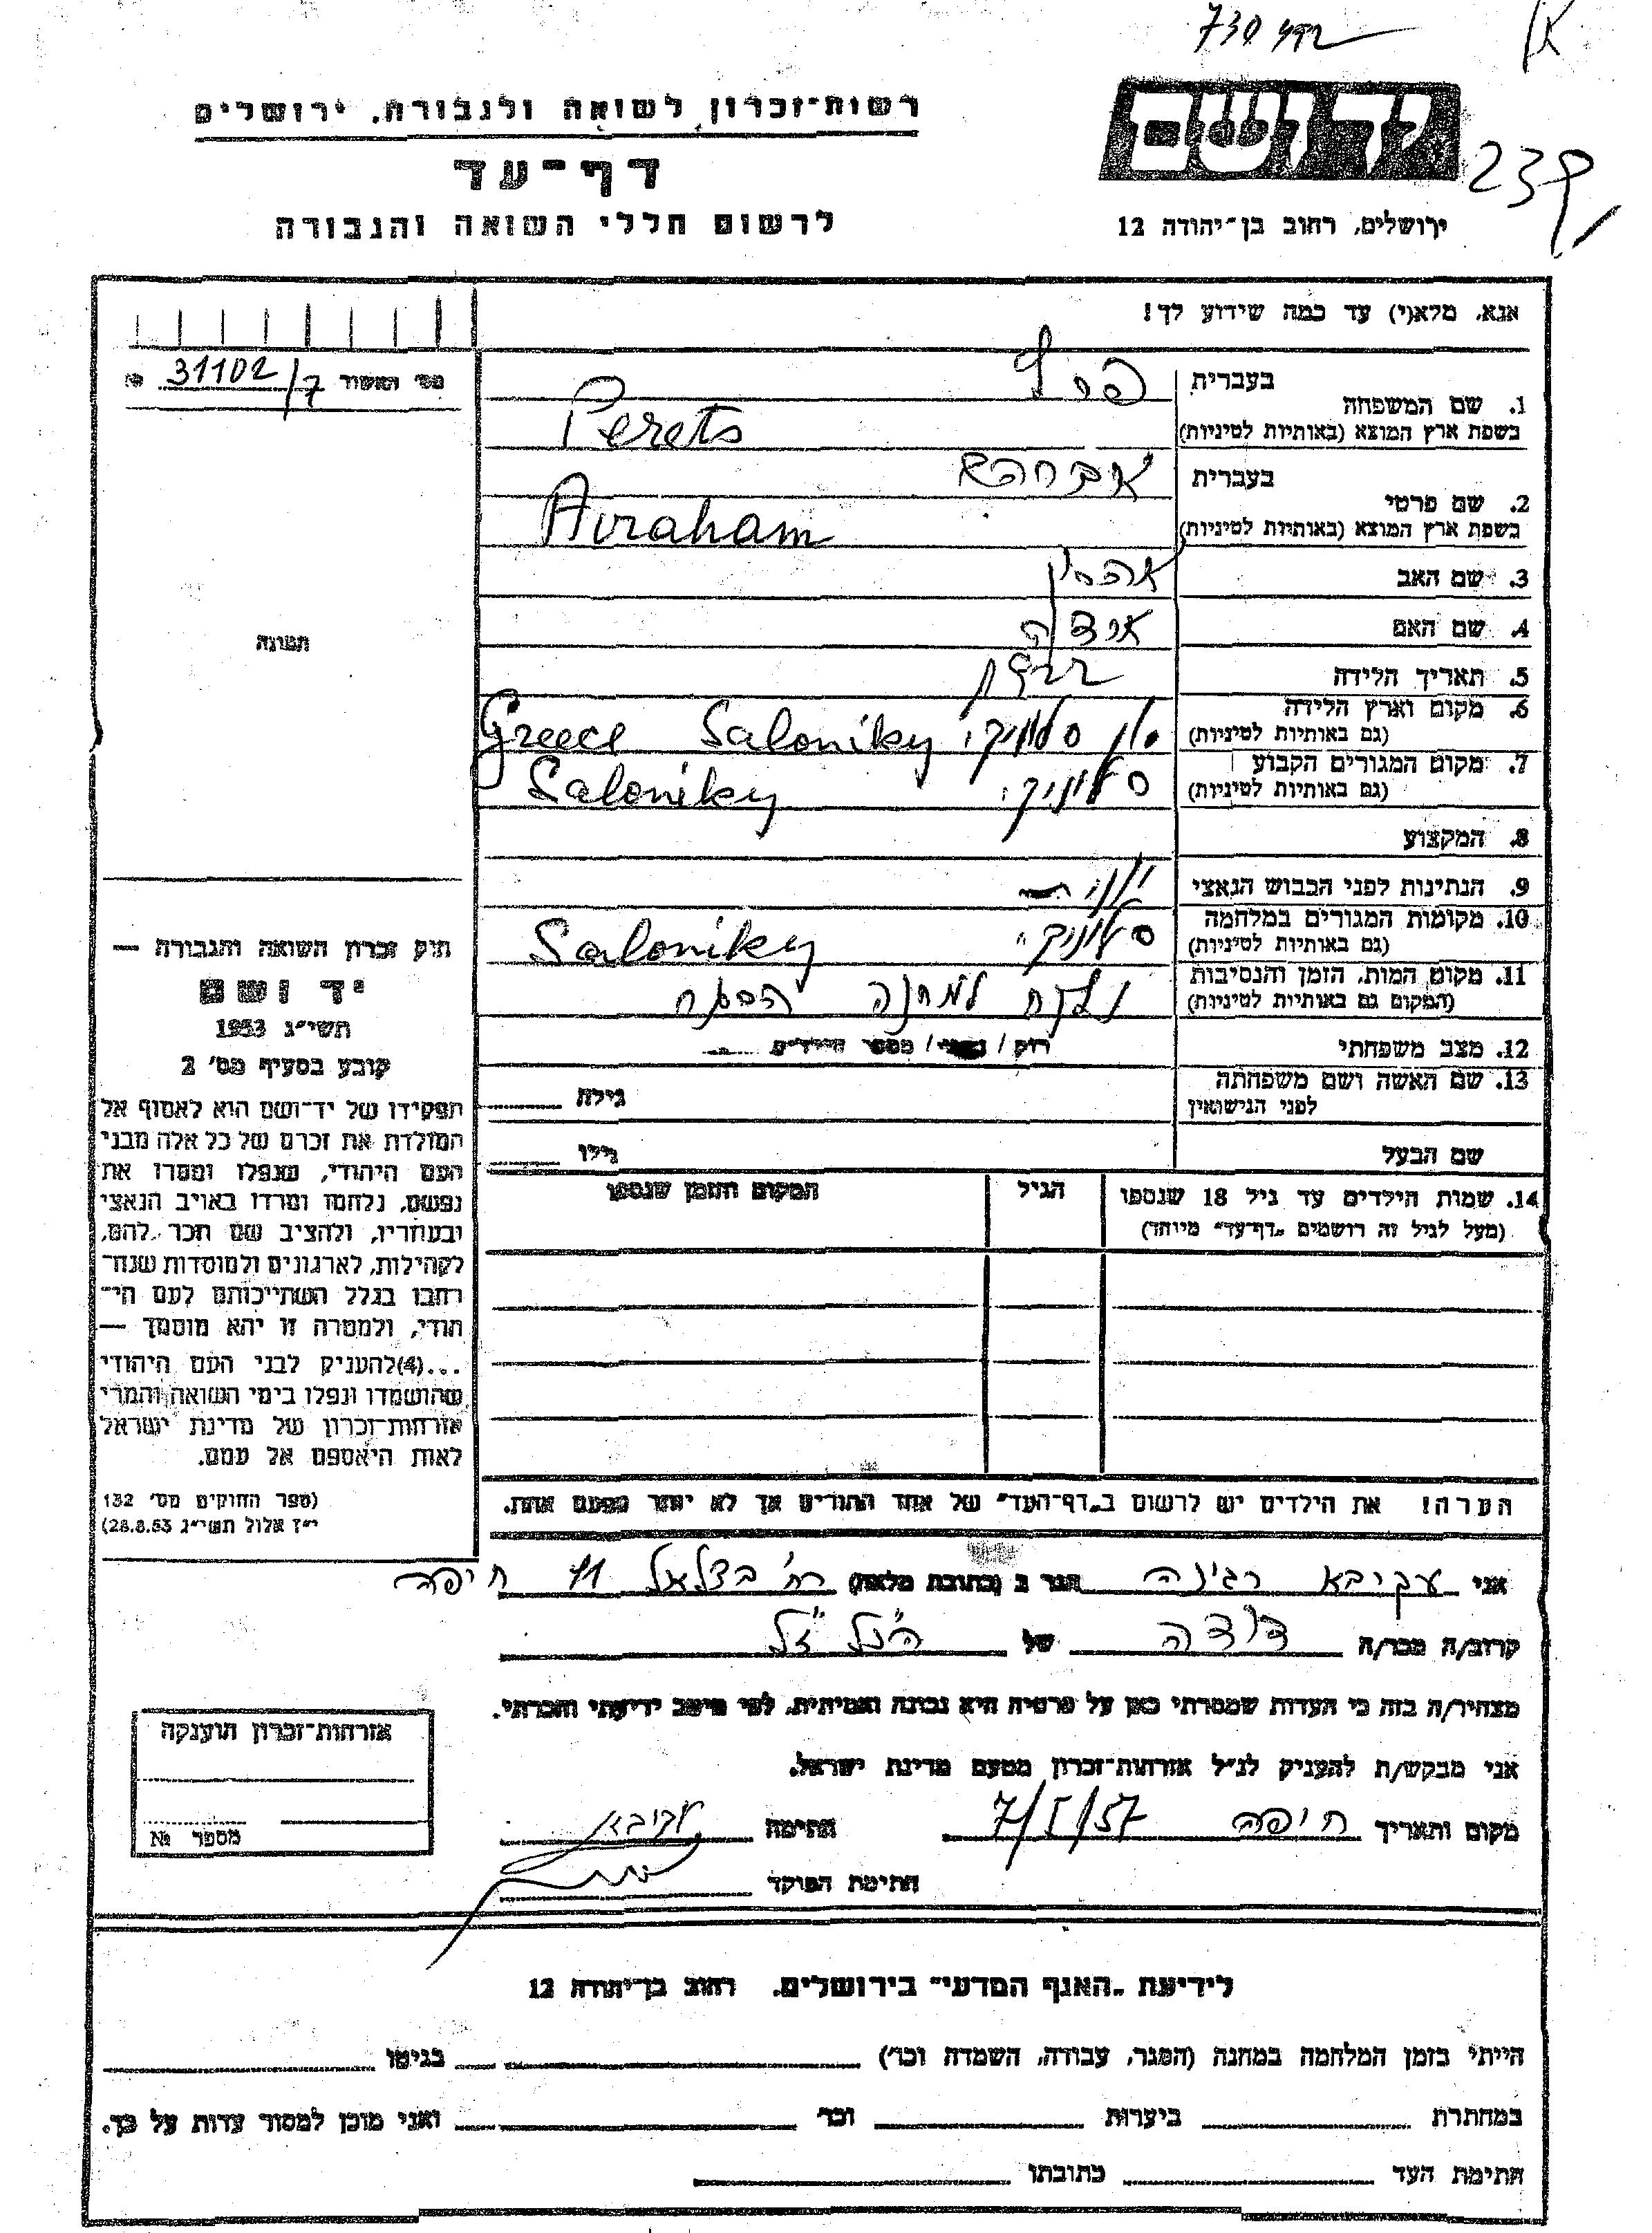 730
רשות־זכרון לשואה ולגבורה, ירושלים
דף־עד
לרשום חללי השואה והגבורה
יד ושם
239
ירושלים, רחוב בן־יהודה 12
אנא, מלא(י) עד כמה שידוע לך!
מס' האשור 31102/7 №
בעברית פרץ
1. שם המשפחה
בשפת ארץ המוצא (באותיות לטיניות) Perets
בעברית אברהם
2. שם פרטי
בשפת ארץ המוצא (באותיות לטיניות) Avraham
3. שם האב אהרון
4. שם האם
5. תאריך הלידה
6. מקום וארץ הלידה
(גם באותיות לטיניות) יון סלוניקי Saloniky Greece
7. מקום המגורים הקבוע
(גם באותיות לטיניות) סלוניקי Saloniky
8. המקצוע
9. הנתינות לפני הכבוש הנאצי
10. מקומות המגורים במלחמה
(גם באותיות לטיניות) סלוניקי Saloniky
11. מקום המות, הזמן והנסיבות
(המקום גם באותיות לטיניות) נלקח למחנה
12. מצב משפחתי רווק / נשוי / מספר הילדים
13. שם האשה ושם משפחתה
לפני הנישואין גילה
שם הבעל גילו
14. שמות הילדים עד גיל 18 שנספו הגיל המקום והזמן שנספו
(מעל לגיל זה רושמים "דף־עד" מיוחד)
הערה! את הילדים יש לרשום ב"דף־העד" של אחד ההורים אך לא יותר מפעם אחת.
תמונה
חוק זכרון השואה והגבורה —
יד ושם
תשי"ג 1953
קובע בסעיף מס' 2
תפקידו של יד־ושם הוא לאסוף אל
המולדת את זכרם של כל אלה מבני
העם היהודי, שנפלו ומסרו את
נפשם, נלחמו ומרדו באויב הנאצי
ובעוזריו, ולהציב שם וזכר להם,
לקהילות, לארגונים ולמוסדות שנח־
רבו בגלל השתייכותם לעם הי־
הודי, ולמטרה זו יהא מוסמך —
...(4) להעניק לבני העם היהודי
שהושמדו ונפלו בימי השואה והמרי
אזרחות־זכרון של מדינת ישראל
לאות היאספם אל עמם.
(ספר החוקים מס' 132
י"ז אלול תשי"ג 28.8.53)
אני עקיבא רגינה הגר ב (כתובת מלאה) רח' בצלאל 11 חיפה
קרוב/ה מכר/ה דודה של הנ"ל ז"ל
מצהיר/ה בזה כי העדות שמסרתי כאן על פרטיה היא נכונה ואמיתית, לפי מיטב ידיעתי והכרתי.
אני מבקש/ת להעניק לנ"ל אזרחות־זכרון מטעם מדינת ישראל.
מקום ותאריך חיפה 7/I/57 חתימה עקיבא
חתימת הפוקד
אזרחות־זכרון הוענקה
מספר №
לידיעת "האגף המדעי" בירושלים, רחוב בן־יהודה 12
הייתי בזמן המלחמה במחנה (הסגר, עבודה, השמדה וכו') בגיטו
במחתרת ביערות וכו' ואני מוכן למסור עדות על כך.
חתימת העד כתובתו